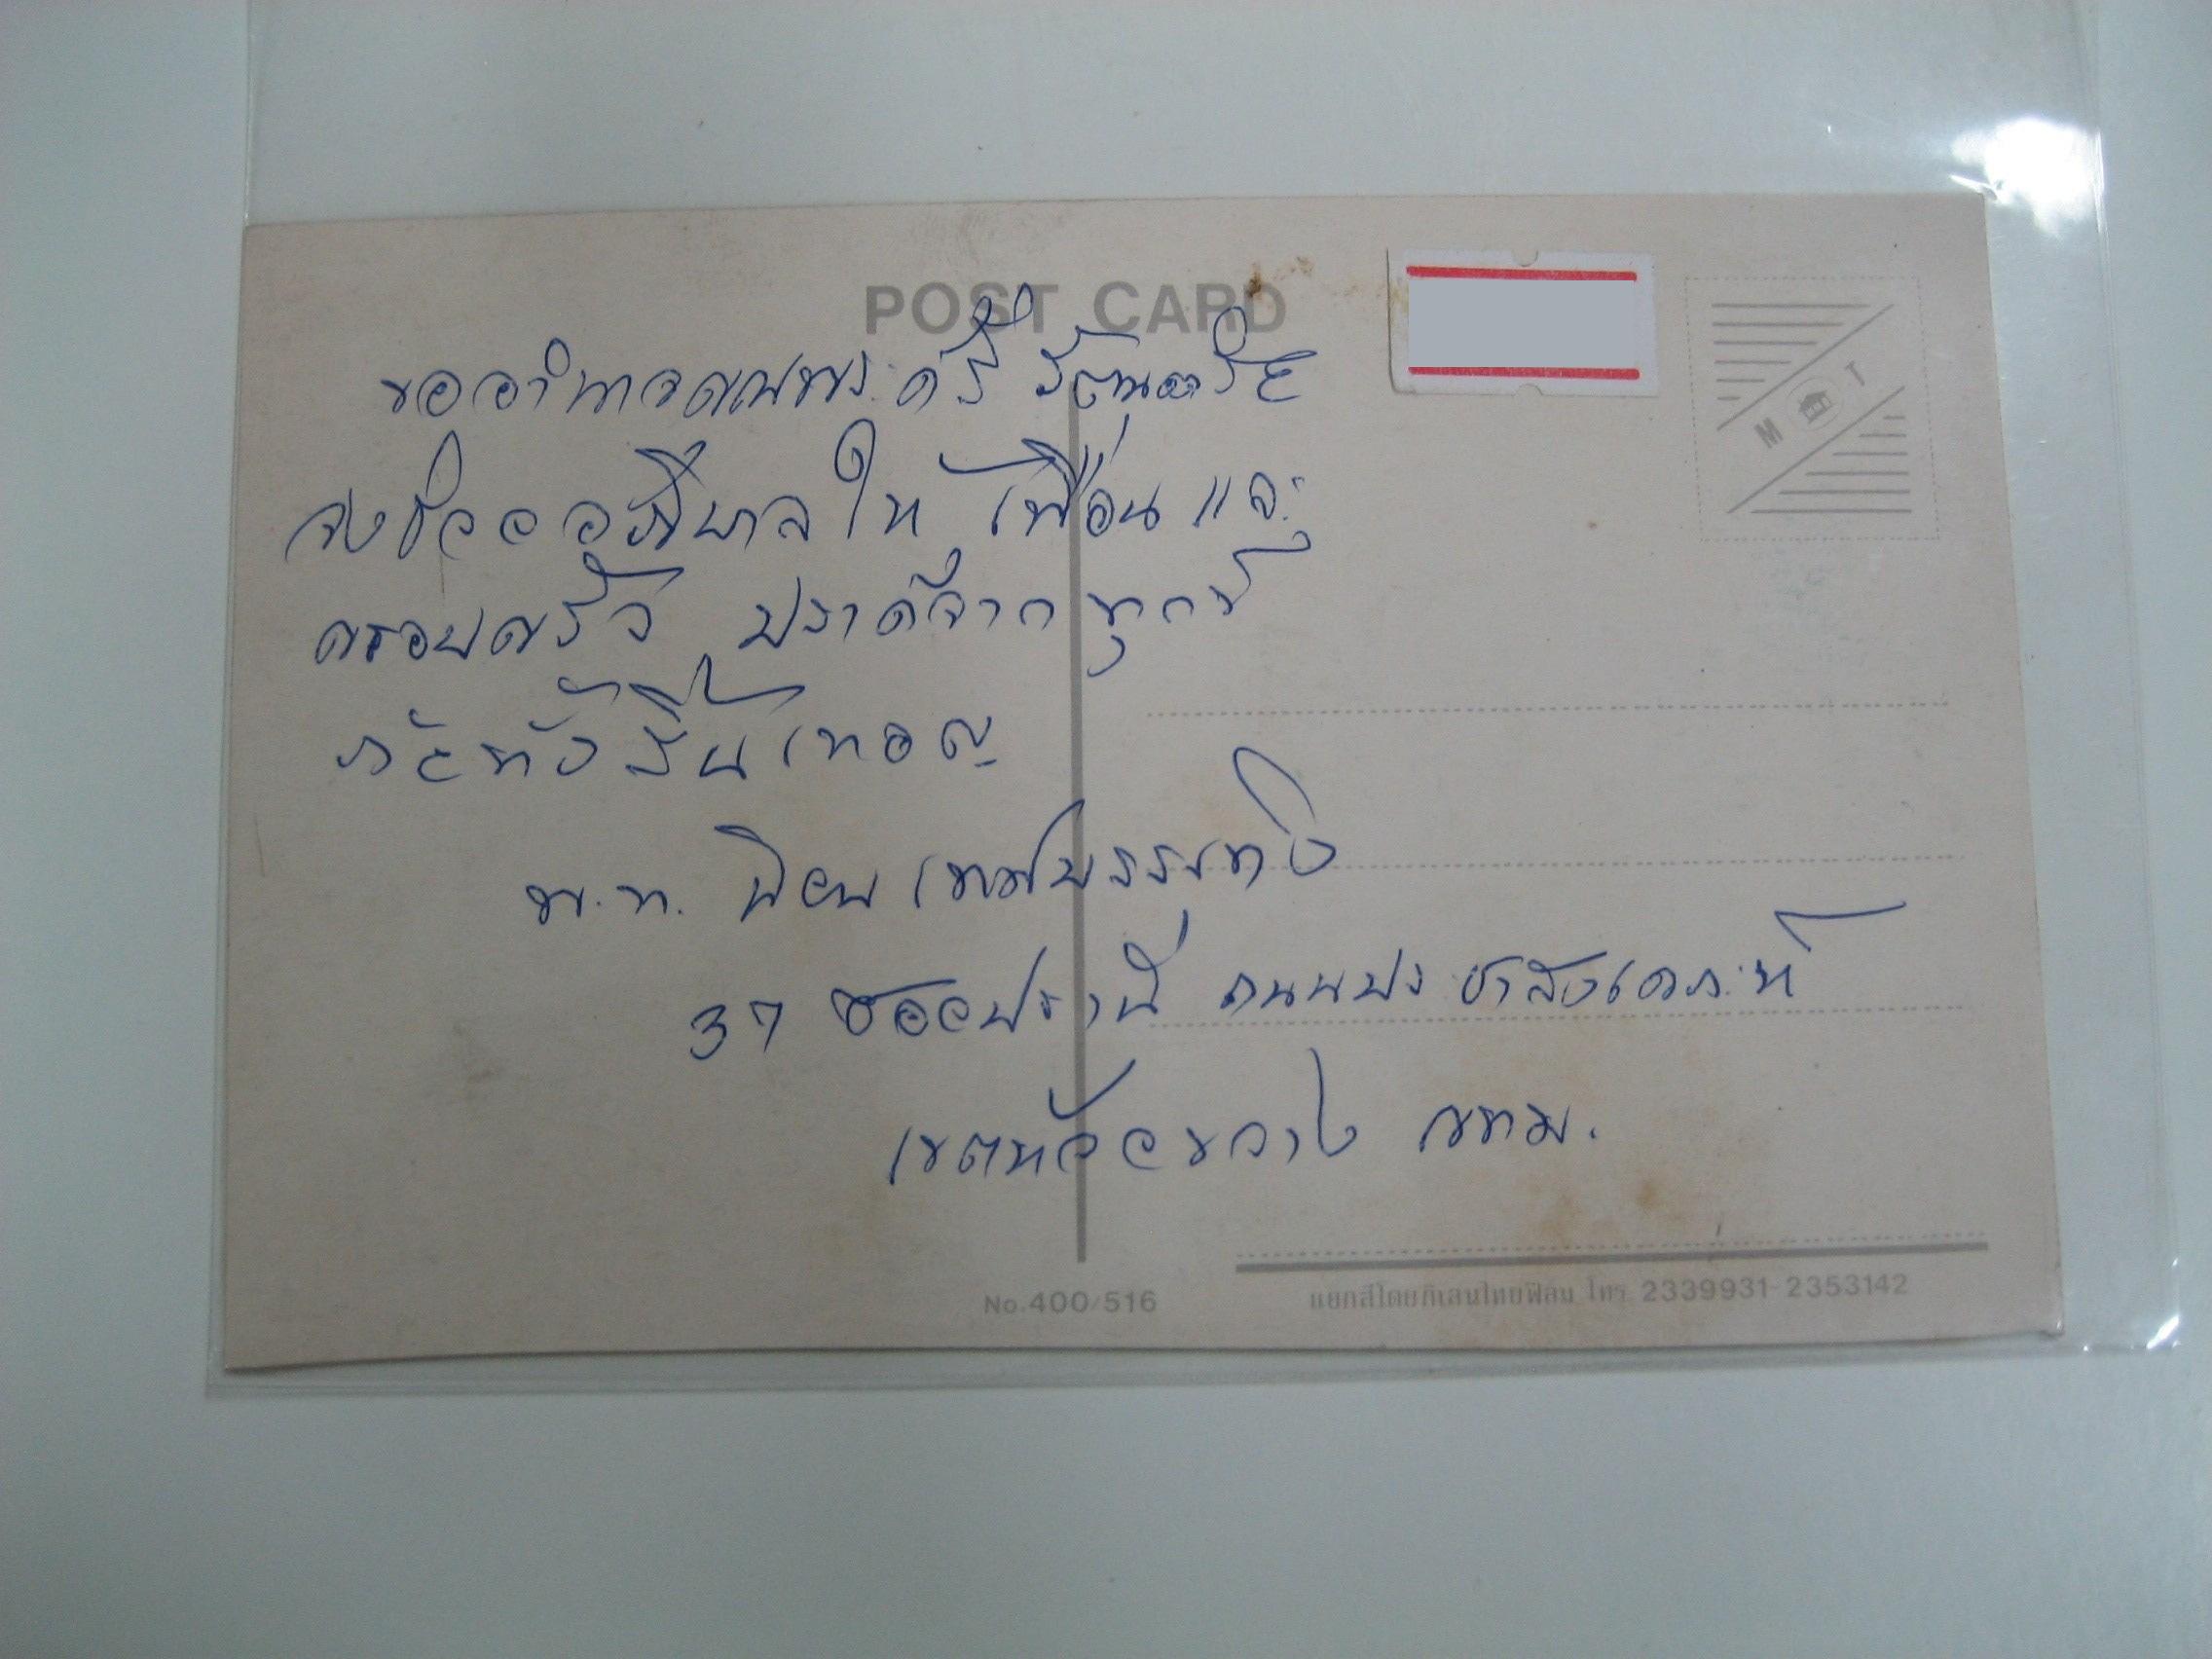 POST CARD
ขออำนาจคุณพระศรีรัตนตรัย
จงช่วยอภิบาลให้เพื่อนและ
ครอบครัว ปราศจากทุกข์
ภัยทั้งสิ้นเทอญ
พ.ท.
37 ซอยปราณี ถนนประชาสงเคราะห์
เขตห้วยขวาง กทม.
M T
No.400/516
แยกสีโดยกิเลนไทยฟิล์ม โทร. 2339931-2353142